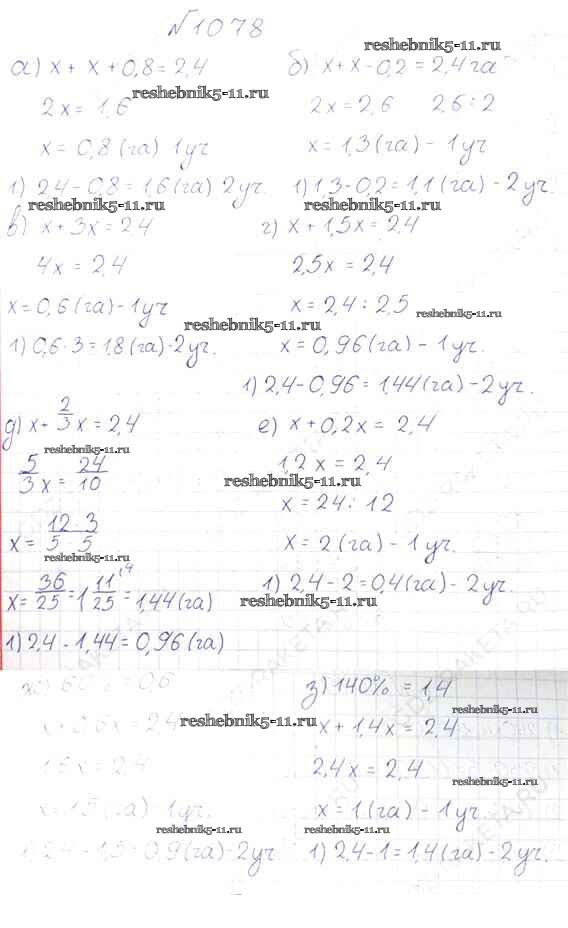 №1078
reshebnik5-11.ru
а) x + x + 0,8 = 2,4
б) x + x - 0,2 = 2,4 га
reshebnik5-11.ru
2x = 1,6
2x = 2,6 2,6 : 2
x = 0,8 (га) 1уч
x = 1,3 (га) - 1уч
1) 2,4 - 0,8 = 1,6 (га) 2уч.
1) 1,3 - 0,2 = 1,1 (га) - 2уч.
reshebnik5-11.ru
reshebnik5-11.ru
в) x + 3x = 2,4
г) x + 1,5x = 2,4
4x = 2,4
2,5x = 2,4
x = 0,6 (га) - 1уч
x = 2,4 : 2,5
reshebnik5-11.ru
reshebnik5-11.ru
1) 0,6 · 3 = 1,8 (га) - 2уч.
x = 0,96 (га) - 1уч.
1) 2,4 - 0,96 = 1,44 (га) - 2уч.
д) x + 2/3 x = 2,4
е) x + 0,2x = 2,4
reshebnik5-11.ru
5/3 x = 24/10
1,2x = 2,4
reshebnik5-11.ru
x = 24 : 12
x = 12 · 3 / 5 · 5
x = 2 (га) - 1уч.
reshebnik5-11.ru
x = 36/25 = 1 11/25 = 1,44 (га)
1) 2,4 - 2 = 0,4 (га) - 2уч.
reshebnik5-11.ru
1) 2,4 - 1,44 = 0,96 (га)
ж) 60% = 0,6
з) 140% = 1,4
reshebnik5-11.ru
x + 0,6x = 2,4
reshebnik5-11.ru
x + 1,4x = 2,4
1,6x = 2,4
2,4x = 2,4
reshebnik5-11.ru
x = 1,5 (га) - 1уч.
x = 1 (га) - 1уч.
reshebnik5-11.ru
reshebnik5-11.ru
1) 2,4 - 1,5 = 0,9 (га) - 2уч
1) 2,4 - 1 = 1,4 (га) - 2уч.